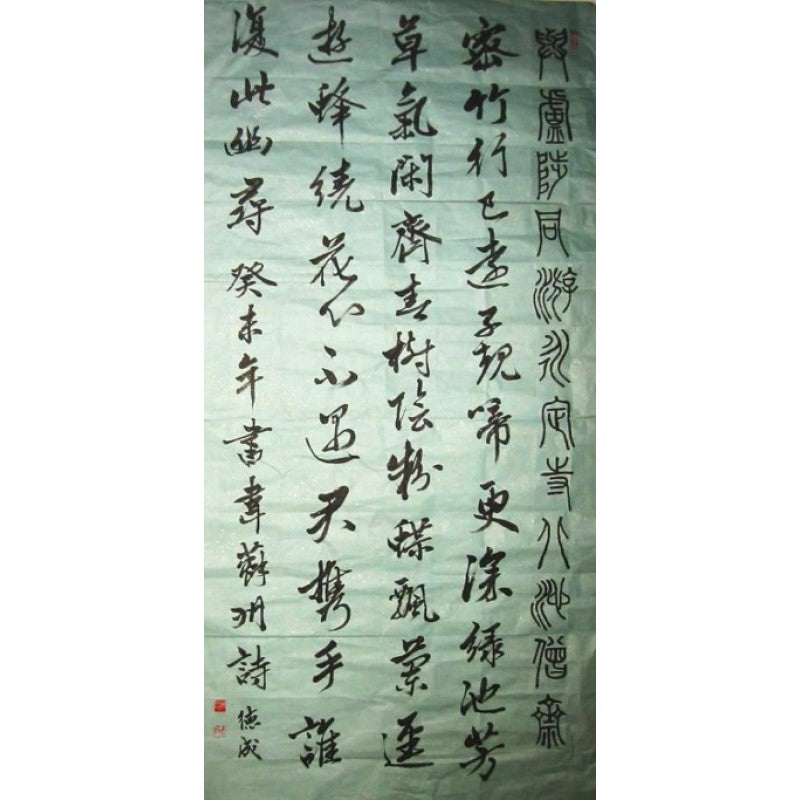 與盧陟同游永定寺北池僧齋
密竹行已遠子規啼更深綠池芳
草氣閑齋春樹陰粉蝶飄蘭逕
遊蜂繞花心不遇君攜手誰
復此幽尋 癸未年書韋蘇州詩 德成